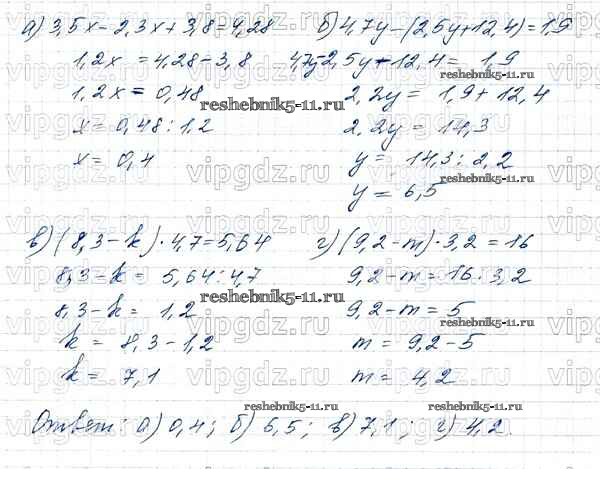 а) 3,5x - 2,3x + 3,8 = 4,28
1,2x = 4,28 - 3,8
1,2x = 0,48
x = 0,48 : 1,2
x = 0,4
б) 4,7y - (2,5y + 12,4) = 1,9
4,7y - 2,5y - 12,4 = 1,9
2,2y = 1,9 + 12,4
2,2y = 14,3
y = 14,3 : 2,2
y = 6,5
в) (8,3 - k) · 4,7 = 5,64
8,3 - k = 5,64 : 4,7
8,3 - k = 1,2
k = 8,3 - 1,2
k = 7,1
г) (9,2 - m) · 3,2 = 16
9,2 - m = 16 : 3,2
9,2 - m = 5
m = 9,2 - 5
m = 4,2
Ответ: а) 0,4; б) 6,5; в) 7,1; г) 4,2.
vipgdz.ru
reshebnik5-11.ru